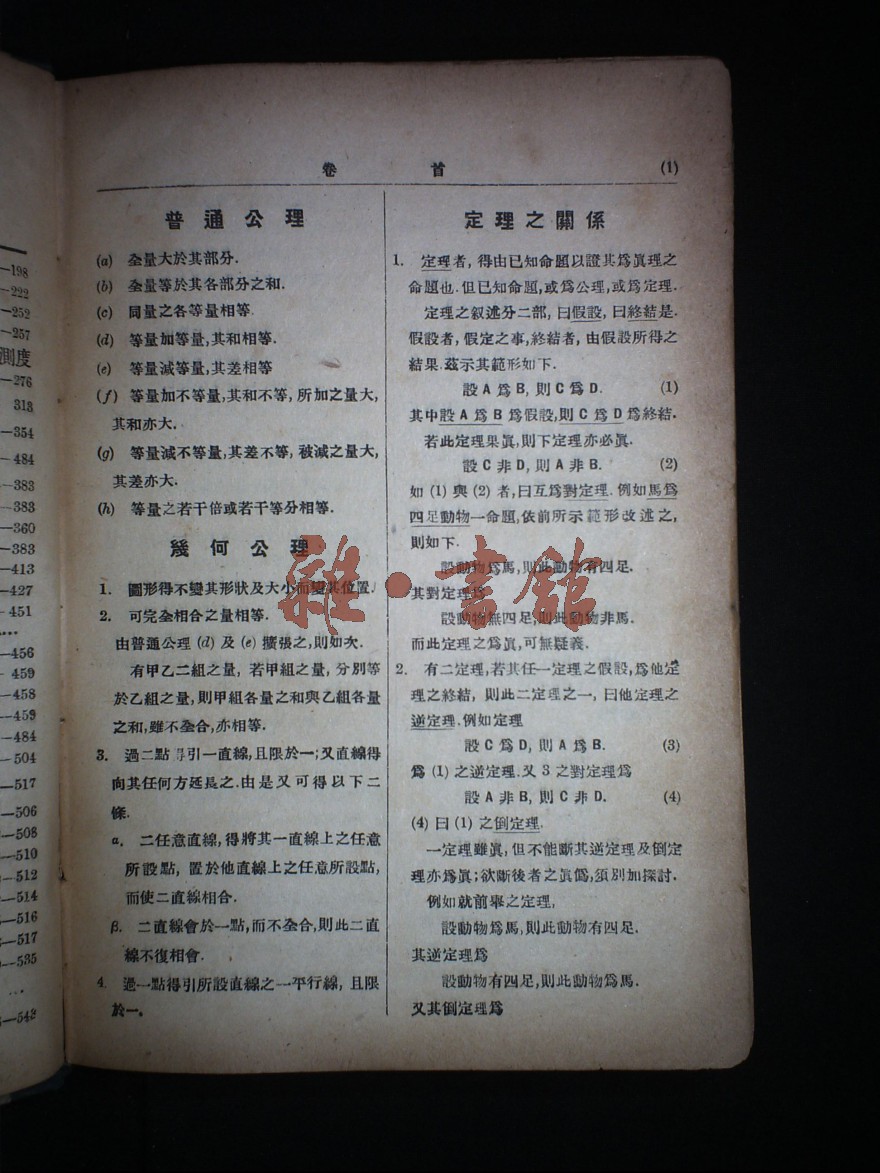 —198
—222
—252
—257
測度
—276
313
—354
— 484
—383
—383
—360
—383
—413
—427
— 451
....
—456
— 459
—458
—459
—484
— 504
—517
—506
—508
—510
—512
—514
—516
—517
—535
...
—548
卷 首 (1)
普通公理
(a) 全量大於其部分.
(b) 全量等於其各部分之和.
(c) 同量之各等量相等.
(d) 等量加等量,其和相等.
(e) 等量減等量,其差相等
(f) 等量加不等量,其和不等, 所加之量大,
其和亦大.
(g) 等量減不等量,其差不等, 被減之量大,
其差亦大.
(h) 等量之若干倍或若干等分相等.
幾何公理
1. 圖形得不變其形狀及大小而變其位置.
2. 可完全相合之量相等.
由普通公理 (d) 及 (e) 擴張之,則如次.
有甲乙二組之量, 若甲組之量, 分別等
於乙組之量,則甲組各量之和與乙組各量
之和,雖不全合,亦相等.
3. 過二點得引一直線,且限於一;又直線得
向其任何方延長之.由是又可得以下二
條.
α. 二任意直線,得將其一直線上之任意
所設點, 置於他直線上之任意所設點,
而使二直線相合.
β. 二直線會於一點,而不全合,則此二直
線不復相會.
4. 過一點得引所設直線之一平行線, 且限
於一.
定理之關係
1. 定理者, 得由已知命題以證其爲眞理之
命題也.但已知命題,或爲公理,或爲定理.
定理之叙述分二部, 曰假設, 曰終結是.
假設者, 假定之事,終結者, 由假設所得之
結果.茲示其範形如下.
設 A 爲 B, 則 C 爲 D. (1)
其中設 A 爲 B 爲假設,則 C 爲 D 爲終結.
若此定理果眞,則下定理亦必眞.
設 C 非 D, 則 A 非 B. (2)
如 (1) 與 (2) 者,曰互爲對定理. 例如馬爲
四足動物一命題,依前所示範形改述之,
則如下.
設動物爲馬,則此動物有四足.
其對定理爲
設動物無四足,則此動物非馬.
而此定理之爲眞,可無疑義.
2. 有二定理,若其任一定理之假設,爲他定
理之終結, 則此二定理之一, 曰他定理之
逆定理.例如定理
設 C 爲 D, 則 A 爲 B. (3)
爲 (1) 之逆定理.又 3 之對定理爲
設 A 非 B, 則 C 非 D. (4)
(4) 曰 (1) 之倒定理.
一定理雖眞, 但不能斷其逆定理及倒定
理亦爲眞;欲斷後者之眞僞,須別加探討.
例如就前舉之定理,
設動物爲馬,則此動物有四足.
其逆定理爲
設動物有四足,則此動物爲馬.
又其倒定理爲
雜·書館